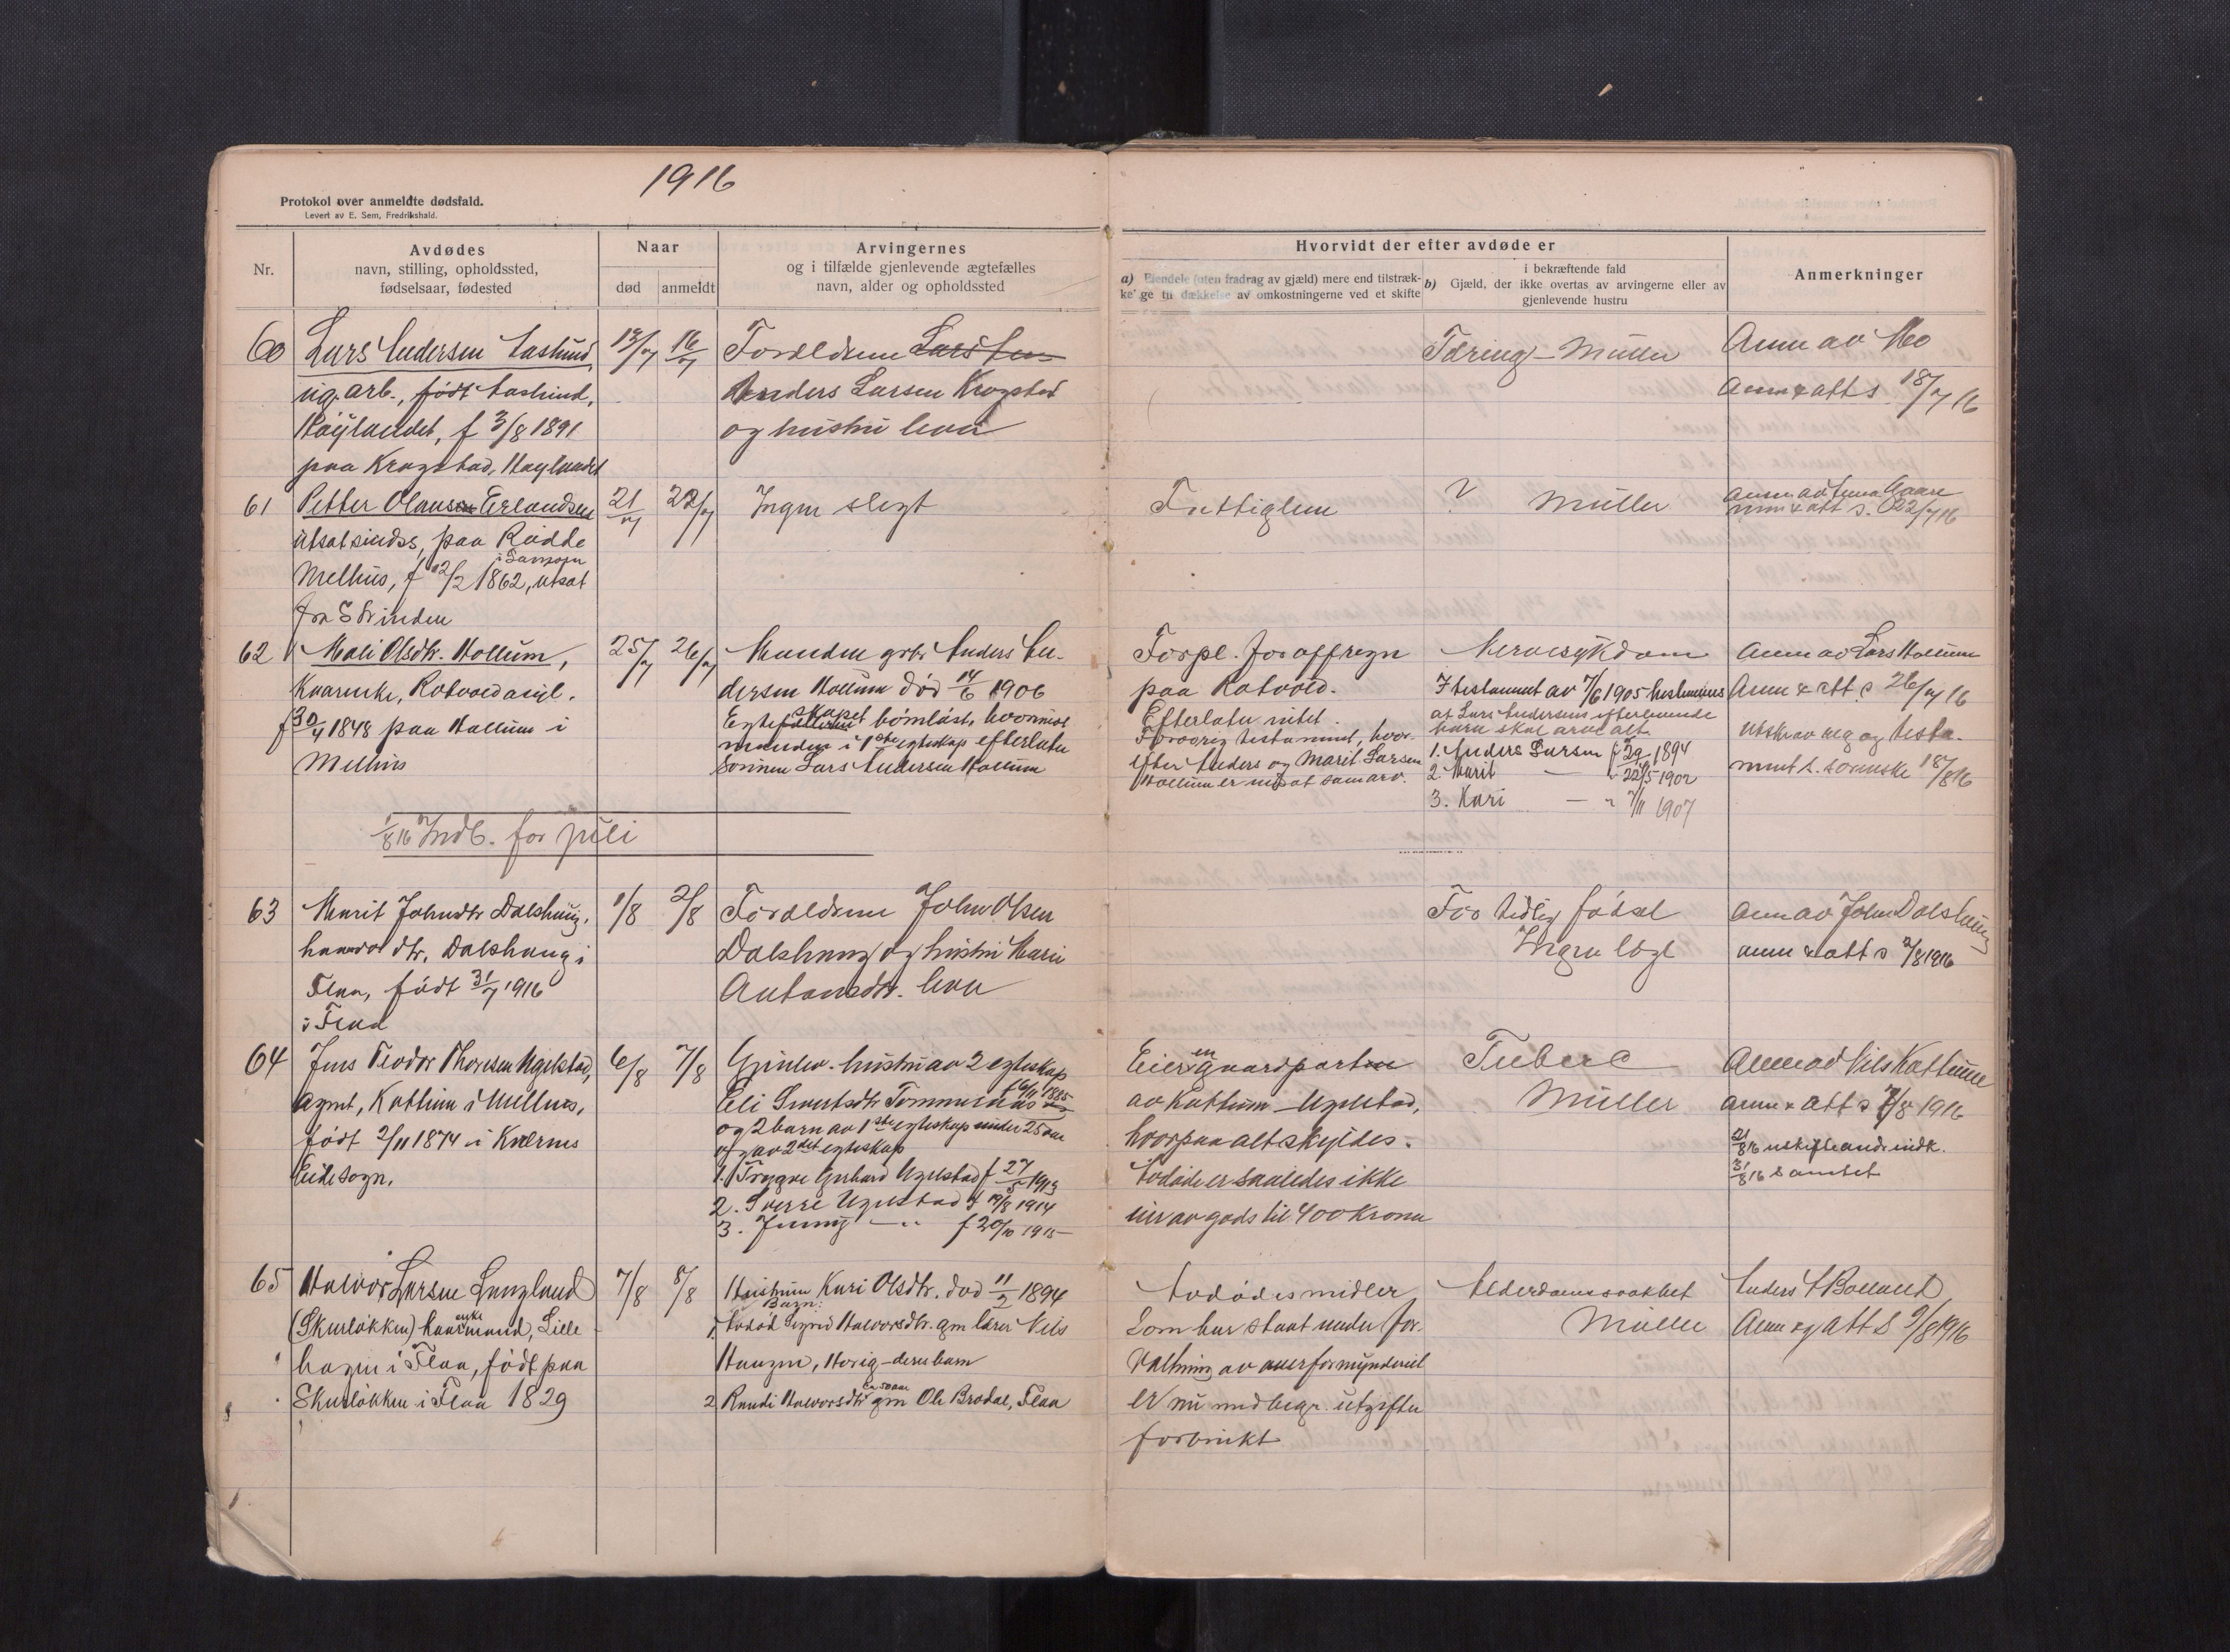 1916
Protokol over anmeldte dødsfald.
Levert av E. Sem, Fredrikshald.
Nr.
Avdødes
navn, stilling, opholdssted,
fødselsaar, fødested
Naar
død
anmeldt
Arvingernes
og i tilfælde gjenlevende ægtefælles
navn, alder og opholdssted
Hvorvidt der efter avdøde er
a) Eiendele (uten fradrag av gjæld) mere end tilstræk-
ke ge til dækkelse av omkostningerne ved et skifte
i bekræftende fald
b) Gjæld, der ikke overtas av arvingerne eller av
gjenlevende hustru
Anmerkninger
60 Lars Andersen
ug. arb., født
Høylandet, f 3/8 1891
paa Krogstad, Høylandet
16/7
Forældrene
Anders Larsen Krogstad
og hustru leva
Tæring - Müller
Anm av Mo
Anm & att s 18/7 16
61 Petter Olausen Erlandsen
paa Rødde
Melhus, f 12/2 1862, utsat
fra Strinden
21/7
22/7
Ingen slegt
Fattiglem
?
Müller
Anm & att s. 22/7 16
62 Mali Olsdtr. Hollum,
Kaarenke, Rotvoldasyl.
f 30/4 1848 paa Hollum i
Melhus
25/7
26/7
Manden grbr Anders An-
dersen Hollum død 14/6 1906
Egteskapet børnløst, hvorimot
manden i 1ste egteskap efterlater
sønnen Lars Andersen Hollum
Forpl. for off regn
paa Rotvold.
Efterlater intet.
Forøvrig testament, hvor-
efter Anders og Marit Larsen
Hollum er indsat som arv.
Nervesykdom
I testament av 7/6 1905 bestemmes
at Lars Andersens efterlevende
barn skal arve alt.
1. Anders Larsen 1894
2. Marit — 22/5 1902
3. Kari — 7/11 1907
Anm av Lars Hollum
Anm & att s 26/7 16
Utskrav reg og testa-
ment s. sorenskr 18/8 16
1/8 16 Indb. for juli
63 Marit Johnsdtr Dalshaug,
dtr, Dalshaug i
Flaa, født 31/7 1916
i Flaa
1/8
2/8
Forældrene John Olsen
Dalshaug og hustru Marie
Antonsdtr. leva
For tidlig fødsel
Ingen læge
Anm av John Dalshaug
Anm & att s 2/8 1916
64 Jens Teodor Thoresen Ugelstad,
agent, Kattum i Melhus,
født 2/11 1874 i Kværnes
Eide sogn.
6/8
7/8
Gjenlev. hustru av 2 egteskap
og 2 barn av 1ste egteskap under 25 aar
og av 2det egteskap
1. Trygve Gerhard Ugelstad f 27/5 1913
2. Sverre Ugelstad f 19/8 1914
3. Jenny — f 20/10 1915
Eier en gaardpart
av Kattum - Ugelstad,
hvorpaa alt skyldes.
Avdøde er saaledes ikke
eier av gods til 400 kroner
Tuberc
Müller
Anm av Nils Kattum
Anm & att s 7/8 1916
21/8 16 uskifteandr. indk.
31/8 16 samtet
65 Halvor Larsen Langland
(Skurløkken) enke
husmand, Lille
hagen i Flaa, født paa
Skurløkken i Flaa 1829
7/8
8/8
Hustruen Kari Olsdtr. død 11/2 1894
Barn:
1. Avdød Sigrid Halvorsdtr. gm lærer Nils
Haugen, Horig - deres barn
2 Randi Halvorsdtr gm Ole Brodal, Flaa
Avdødes midler
som har staat under for-
valtning av overformynderiet
er nu med begr. utgifter
forbrukt
Alderdomssvakhet
Müller
Anm og att s 9/8 1916